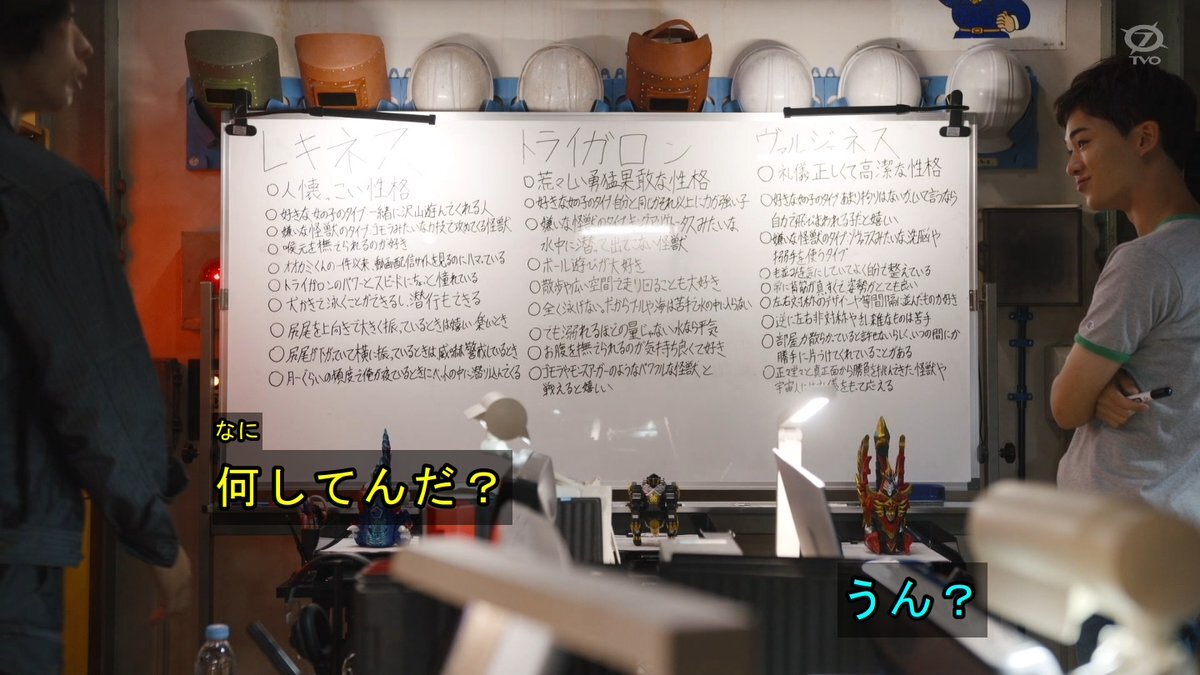 TVO
レキネス
○人懐っこい性格
○好きな女の子のタイプ 一緒に沢山遊んでくれる人
○嫌いな怪獣のタイプ ゴモラみたいな力技で攻めてくる怪獣
○喉元を撫でられるのが好き
○オオカミくんの一件以来、動画配信サイトを見るのにハマっている
○トライガロンのパワーとスピードにちょっと憧れている
○犬かきで泳ぐことができるし、潜行もできる
○尻尾を上向きで大きく振っているときは嬉しい
○尻尾が下がっていて横に振っているときは威嚇、警戒しているとき
○月一くらいの頻度で俺が寝ているときにベットの中に潜り込んでくる
トライガロン
○荒々しい勇猛果敢な性格
○好きな女の子のタイプ 自分と同じかそれ以上に力が強い子
○嫌いな怪獣のタイプ
水中に潜って出てこない怪獣
○ボール遊びが大好き
○散歩や広い空間で走り回ることも大好き
○全く泳げない、だからプールや海は苦手で水の中に入らない
○でも溺れるほどの量じゃない水なら平気
○お腹を撫でられるのが気持ち良くて好き
○ゴモラやモースアガーのようなパワフルな怪獣と
戦えると嬉しい
ヴァルジネス
○礼儀正しくて高潔な性格
○好きな女の子のタイプ あまり拘りはないが、しいて言うなら
自力で飛べる子だと嬉しい
○嫌いな怪獣のタイプ みたいな洗脳や
を使うタイプ
○毛並みを気にしていてよく自分で整えている
○常に背筋が真っすぐで姿勢がとても良い
○左右対称のデザインや等間隔に並んだものが好き
○逆に左右非対称や乱雑なものは苦手
○部屋が散らかっていると許せないらしく、いつの間にか
勝手に片づけてくれていることがある
○正々堂々と真正面から勝負を挑んできた怪獣や
宇宙人には をもって応える
なに
何してんだ？
うん？